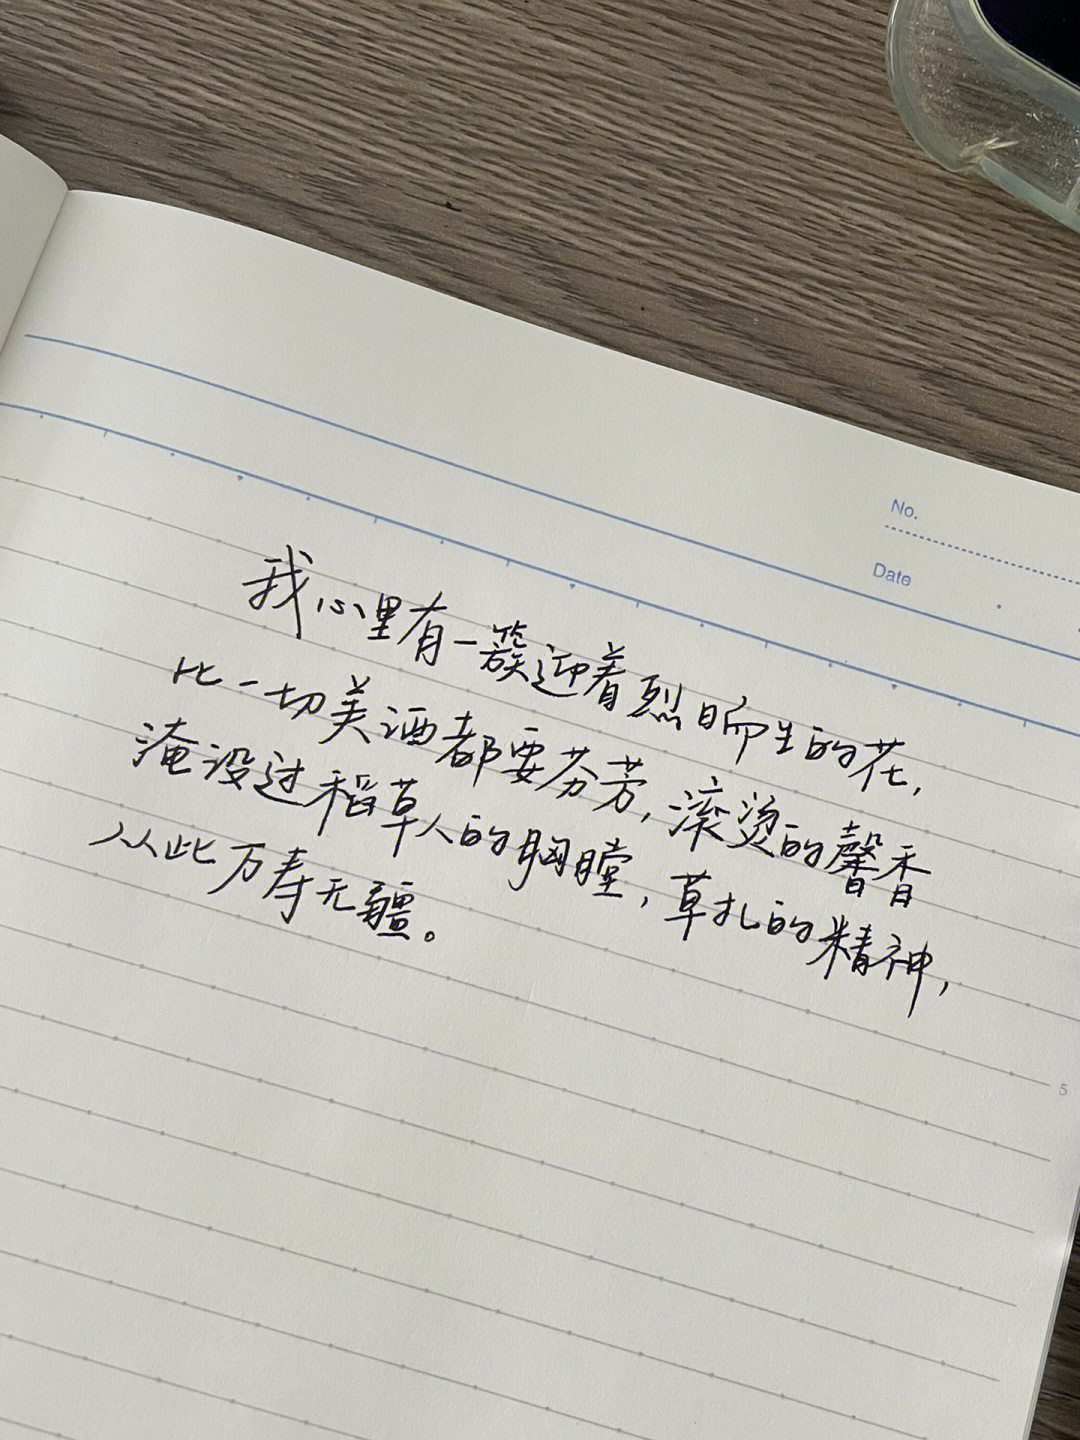 No.
Date
我心里有一簇迎着烈日而生的花,
比一切美酒都要芬芳,滚烫的馨香
淹没过稻草人的胸膛,草扎的精神,
从此万寿无疆。
5